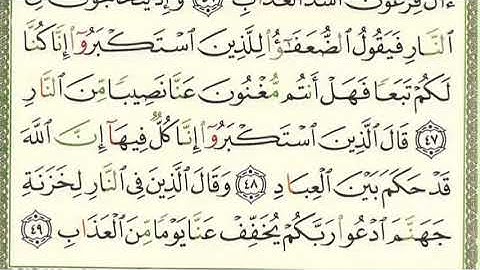 ءَالَ فِرْعَوْنَ أَشَدَّ ٱلْعَذَابِ ٤٦ وَإِذْ يَتَحَآجُّونَ فِى
ٱلنَّارِ فَيَقُولُ ٱلضُّعَفَـٰٓؤُا۟ لِلَّذِينَ ٱسْتَكْبَرُوٓا۟ إِنَّا كُنَّا
لَكُمْ تَبَعًا فَهَلْ أَنتُم مُّغْنُونَ عَنَّا نَصِيبًا مِّنَ ٱلنَّارِ
٤٧ قَالَ ٱلَّذِينَ ٱسْتَكْبَرُوٓا۟ إِنَّا كُلٌّ فِيهَآ إِنَّ ٱللَّهَ
قَدْ حَكَمَ بَيْنَ ٱلْعِبَادِ ٤٨ وَقَالَ ٱلَّذِينَ فِى ٱلنَّارِ لِخَزَنَةِ
جَهَنَّمَ ٱدْعُوا۟ رَبَّكُمْ يُخَفِّفْ عَنَّا يَوْمًا مِّنَ ٱلْعَذَابِ ٤٩